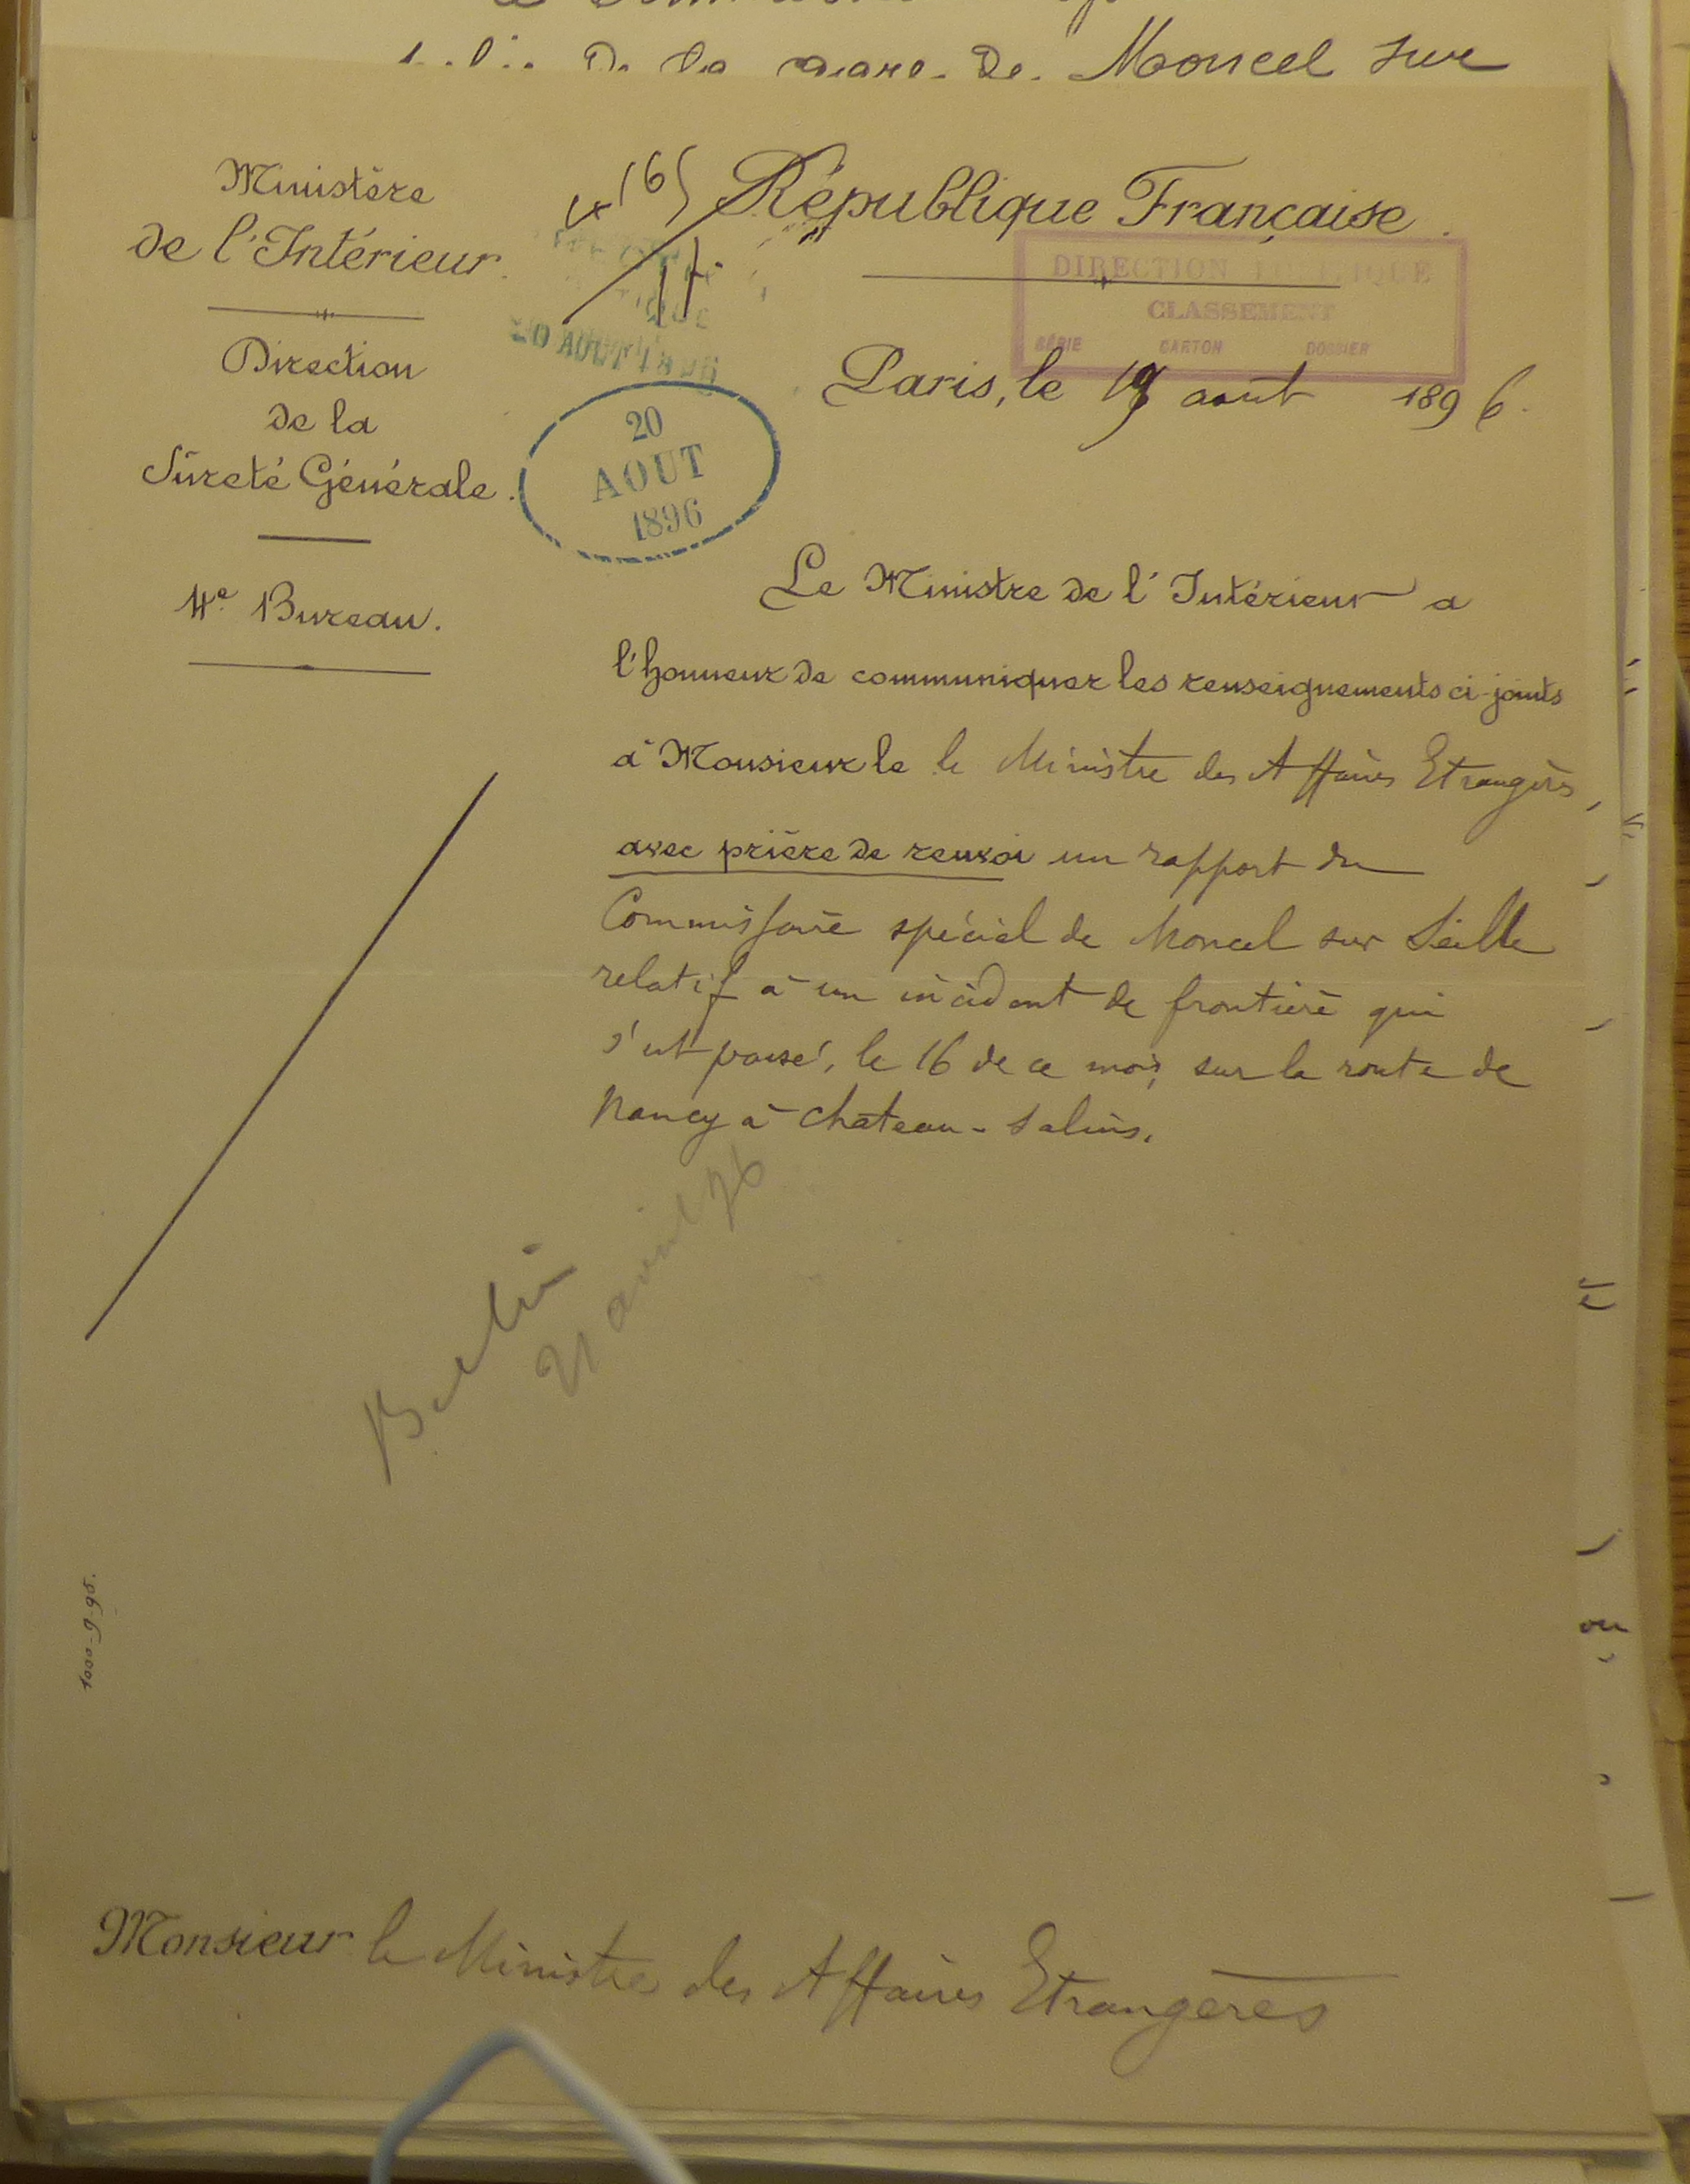 Moncel sur
Ministère
de l'Intérieur.
Direction
de la
Sûreté Générale.
4e Bureau.
(6)
République Française.
DIRECTION POLITIQUE
CLASSEMENT
SÉRIE CARTON DOSSIER
20 AOUT 1896
20
AOUT
1896
Paris, le 19 août 1896.
Le Ministre de l'Intérieur a
l'honneur de communiquer les renseignements ci-joints
à Monsieur le le Ministre des Affaires Etrangères,
avec prière de renvoi un rapport du
Commissaire spécial de Moncel sur Seille
relatif à un incident de frontière qui
s'est passé, le 16 de ce mois, sur la route de
Nancy à Chateau-Salins.
Berlin
21
1000-9-95.
ou
Monsieur le Ministre des Affaires Etrangères